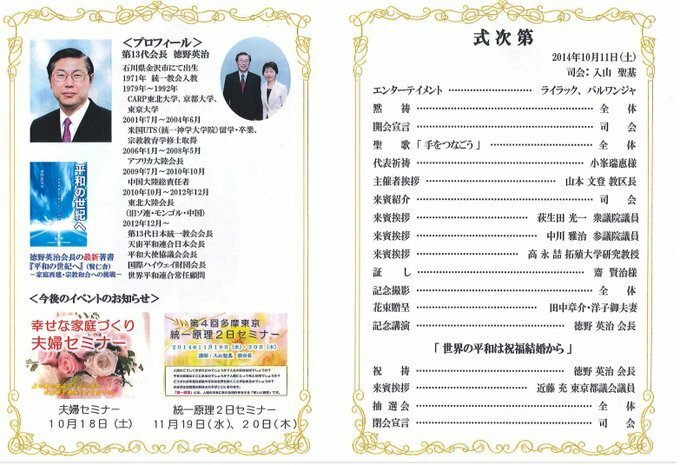 ＜プロフィール＞
第13代会長 徳野英治
石川県金沢市にて出生
1971年 統一教会入教
1979年～1992年
CARP東北大学、京都大学、
東京大学
2001年7月～2004年6月
米国UTS(統一神学大学院)留学・卒業、
宗教教育学修士取得
2006年1月～2008年5月
アフリカ大陸会長
2009年7月～2010年10月
中国大陸総責任者
2010年10月～2012年12月
東北大陸会長
(旧ソ連・モンゴル・中国)
2012年12月～
第13代日本統一教会会長
天宙平和連合日本会長
平和大使協議会会長
国際ハイウェイ財団会長
世界平和連合常任顧問
平和の世紀へ
徳野英治会長の最新著書
『平和の世紀へ』(賢仁舎)
－家庭再建・宗教和合への挑戦－
＜今後のイベントのお知らせ＞
幸せな家庭づくり
夫婦セミナー
夫婦セミナー
10月18日(土)
第4回多摩東京
統一原理2日セミナー
2014年11月19日(水)・20日(木)
講師：入山聖基
統一原理2日セミナー
11月19日(水)、20日(木)
式次第
2014年10月11日(土)
司会：入山 聖基
エンターテイメント ……… ライラック、バルワンジャ
黙祷 ……… 全体
開会宣言 ……… 司会
聖歌「手をつなごう」 ……… 全体
代表祈祷 ……… 小峯瑞恵様
主催者挨拶 ……… 山本 文登 教区長
来賓紹介 ……… 司会
来賓挨拶 ……… 萩生田 光一 衆議院議員
来賓挨拶 ……… 中川 雅治 参議院議員
来賓挨拶 ……… 高 永喆 拓殖大学研究教授
証し ……… 齋 賢治様
記念撮影 ……… 全体
花束贈呈 ……… 田中章介・洋子御夫妻
記念講演 ……… 徳野 英治 会長
「世界の平和は祝福結婚から」
祝祷 ……… 徳野 英治 会長
来賓挨拶 ……… 近藤 充 東京都議会議員
抽選会 ……… 全体
閉会宣言 ……… 司会